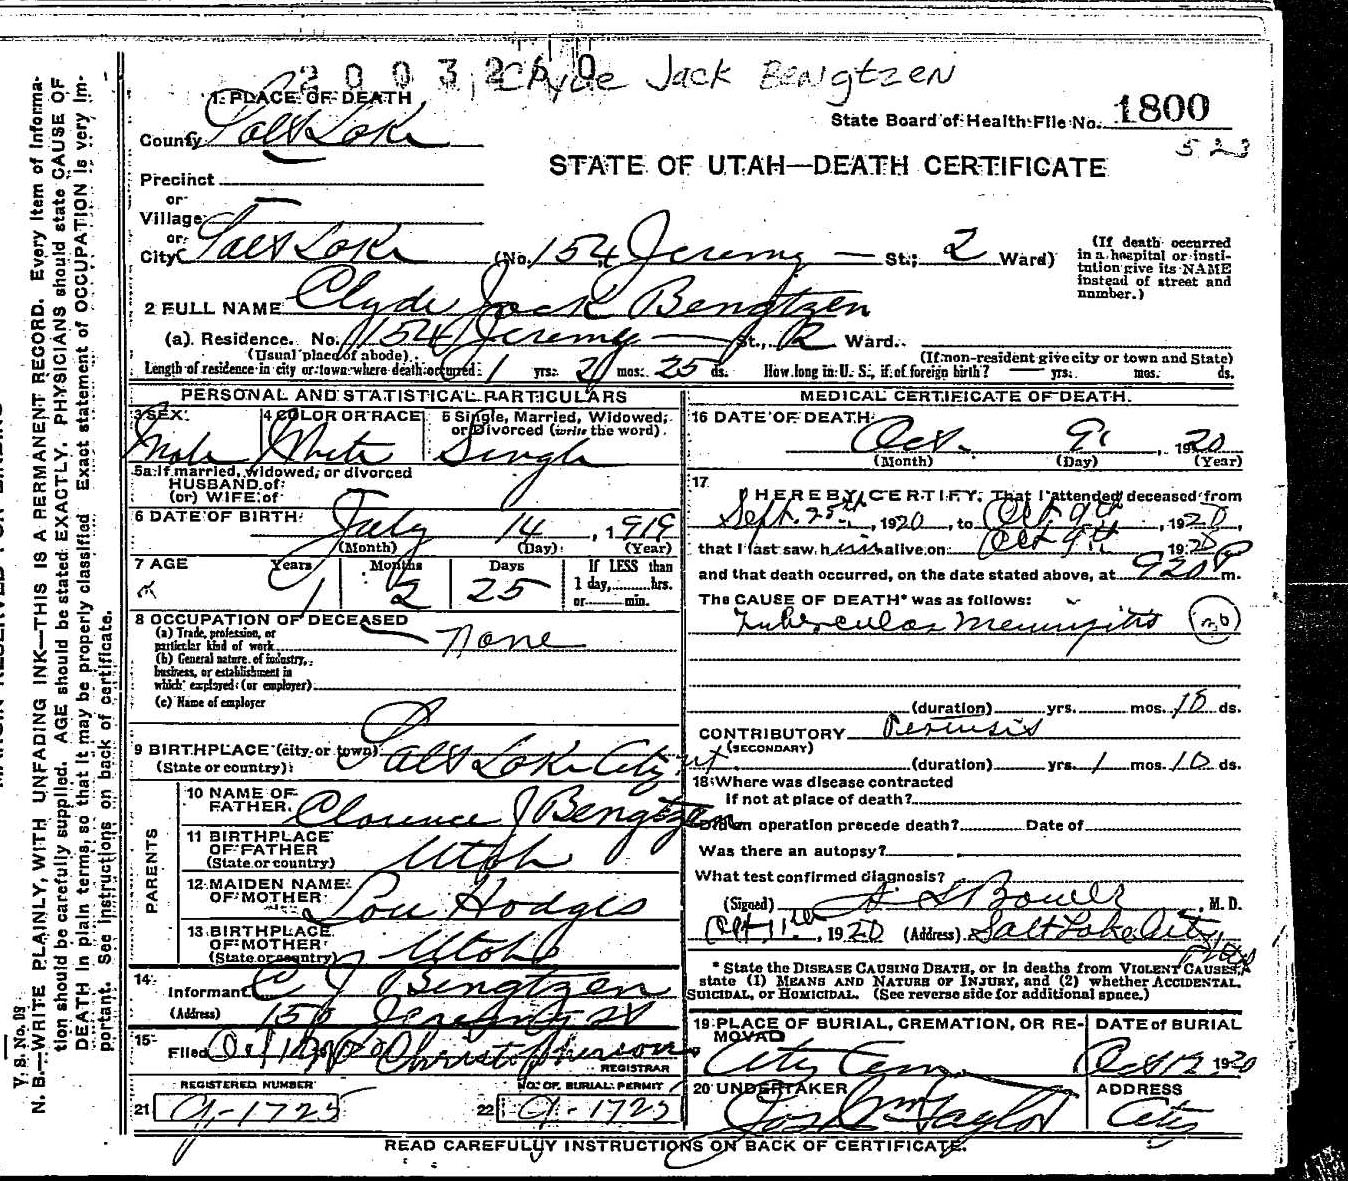 2003260
Clyde Jack Bengtzen
1. PLACE OF DEATH
County Salt Lake
State Board of Health File No. 1800
523
STATE OF UTAH—DEATH CERTIFICATE
Precinct
or
Village
or
City Salt Lake (No. 154 Jeremy — St.; 2 Ward)
(If death occurred
in a hospital or insti-
tution give its NAME
instead of street and
number.)
2 FULL NAME Clyde Jack Bengtzen
(a). Residence. No. 154 Jeremy — St., 2 Ward.
(Usual place of abode) (If non-resident give city or town and State)
Length of residence in city or town where death occurred 1 yrs. 2 mos. 25 ds. How long in U. S., if of foreign birth? — yrs. mos. ds.
PERSONAL AND STATISTICAL PARTICULARS
3 SEX 4 COLOR OR RACE 5 Single, Married, Widowed,
or Divorced (write the word).
Male White Single
5a If married, widowed, or divorced
HUSBAND of
(or) WIFE of
6 DATE OF BIRTH July 14, 1919
(Month) (Day) (Year)
7 AGE Years Months Days If LESS than
1 2 25 1 day, hrs.
or min.
8 OCCUPATION OF DECEASED
(a) Trade, profession, or
particular kind of work None
(b) General nature of industry,
business, or establishment in
which employed (or employer)
(c) Name of employer
9 BIRTHPLACE (city or town) Salt Lake City ut
(State or country)
PARENTS
10 NAME OF
FATHER. Clarence J Bengtzen
11 BIRTHPLACE
OF FATHER Utah
(State or country)
12 MAIDEN NAME
OF MOTHER Lou Hodges
13 BIRTHPLACE
OF MOTHER Utah
(State or country)
14 Informant C J Bengtzen
(Address) Jeremy St
15 Filed Christopherson
REGISTRAR
REGISTERED NUMBER NO. OF BURIAL PERMIT
21 G-1725 22 G-1725
MEDICAL CERTIFICATE OF DEATH.
16 DATE OF DEATH
Oct. 9, 1920
(Month) (Day) (Year)
17 I HEREBY CERTIFY, That I attended deceased from
Sept. 25th, 1920, to Oct 9th, 1920,
that I last saw him alive on Oct 9th 1920
and that death occurred, on the date stated above, at 920 P m.
The CAUSE OF DEATH* was as follows:
Tubercular Meningitis
(duration) yrs. mos. ds.
CONTRIBUTORY Pertussis
(SECONDARY)
(duration) yrs. 1 mos. 10 ds.
18 Where was disease contracted
if not at place of death?
Did an operation precede death? Date of
Was there an autopsy?
What test confirmed diagnosis?
(Signed) , M. D.
, 1920 (Address) Salt Lake City
* State the DISEASE CAUSING DEATH, or in deaths from VIOLENT CAUSES,
state (1) MEANS AND NATURE OF INJURY, and (2) whether ACCIDENTAL,
SUICIDAL, or HOMICIDAL. (See reverse side for additional space.)
19 PLACE OF BURIAL, CREMATION, OR RE-
MOVAL DATE of BURIAL
City Cem. Oct 12 1920
20 UNDERTAKER ADDRESS
Jos Wm Taylor City
READ CAREFULLY INSTRUCTIONS ON BACK OF CERTIFICATE.
V. S. No. 
N. B.—WRITE PLAINLY, WITH UNFADING INK—THIS IS A PERMANENT RECORD. Every item of informa-
tion should be carefully supplied. AGE should be stated EXACTLY. PHYSICIANS should state CAUSE OF
DEATH in plain terms, so that it may be properly classified. Exact statement of OCCUPATION is very im-
portant. See instructions on back of certificate.